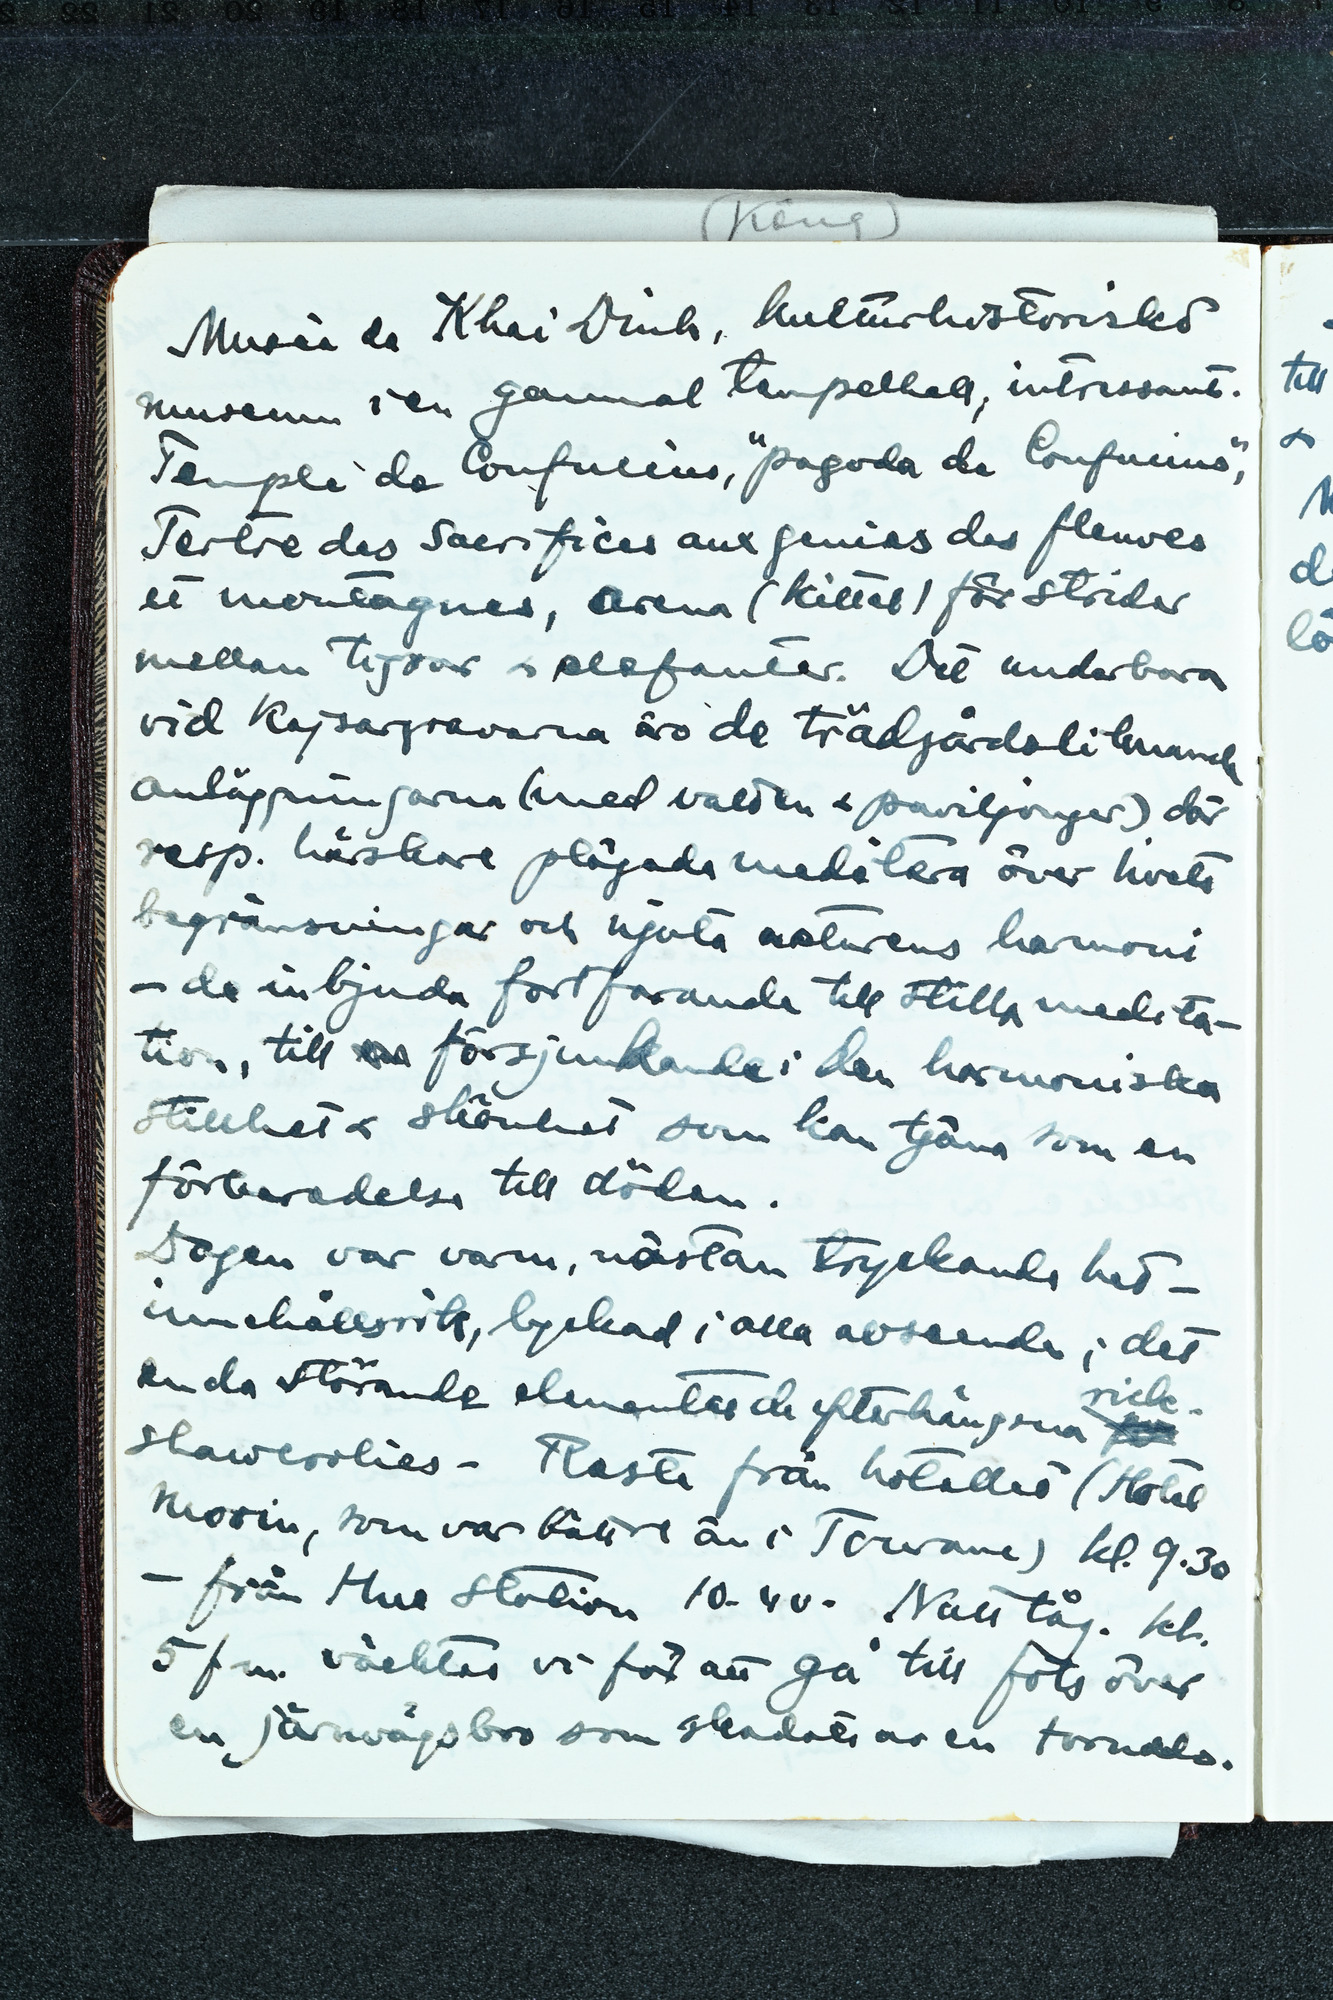 (Köng)
Musée de Khai Dinh, kulturhistoriskt
museum i en gammal tempelhall, intressant.
Temple de Confucius, "pagoda de Confucius",
Tertre des Sacrifices aux genies des fleuves
et montagnes, arena (kittel) för strider
mellan tigrar & elefanter. Det underbara
vid Kejsargravarna äro de trädgårdsliknande
anläggningarna (med vatten & paviljonger) där
resp. härskare plägade meditera över livets
begränsningar och njuta naturens harmoni
– de inbjuda fortfarande till stilla medita-
tion, till försjunkande i den harmoniska
stillhet & skönhet som kan tjäna som en
förberedelse till döden.
Dagen var varm, nästan tryckande het –
innehållsrik, lyckad i alla avseenden; det
enda störande elementet de efterhängsna rick-
shawcoolies – Reste från hotellet (Hotel
Morin, som var bättre än i Tourane) kl. 9.30
– från Hue Station 10.40. Natttåg. kl.
5 f m. väcktes vi för att gå till fots över
en järnvägsbro som skadats av en tornado.
till
&
M
d
lö
22 21 20 19 18 17 16 15 14 13 12 11 10 9 8